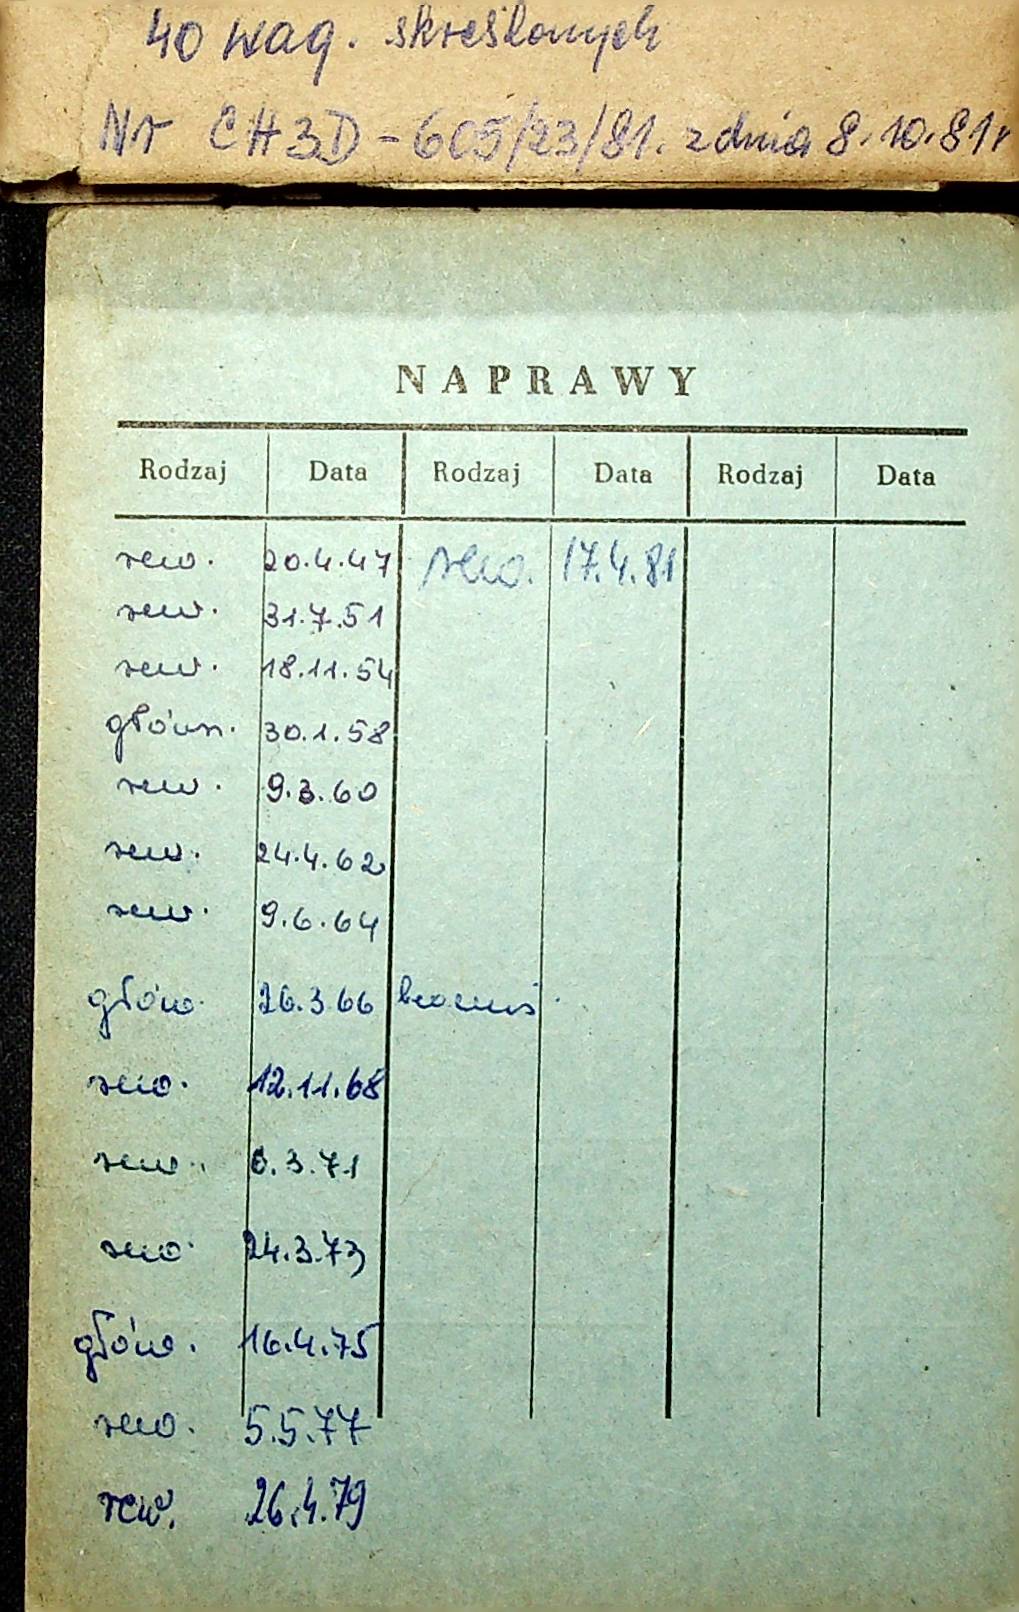 40 wag. skreślonych
Nr CH3D-605/23/81. z dnia 8.10.81r
NAPRAWY
Rodzaj Data Rodzaj Data Rodzaj Data
rew. 20.4.47 rew. 17.4.81
rew. 31.7.51
rew. 18.11.54
główn. 30.1.58
rew. 9.3.60
rew. 24.4.62
rew. 9.6.64
głów. 26.3.66
rew. 12.11.68
rew. 3.71
rew. 24.3.73
głów. 16.4.75
rew. 5.5.77
rew. 26.4.79